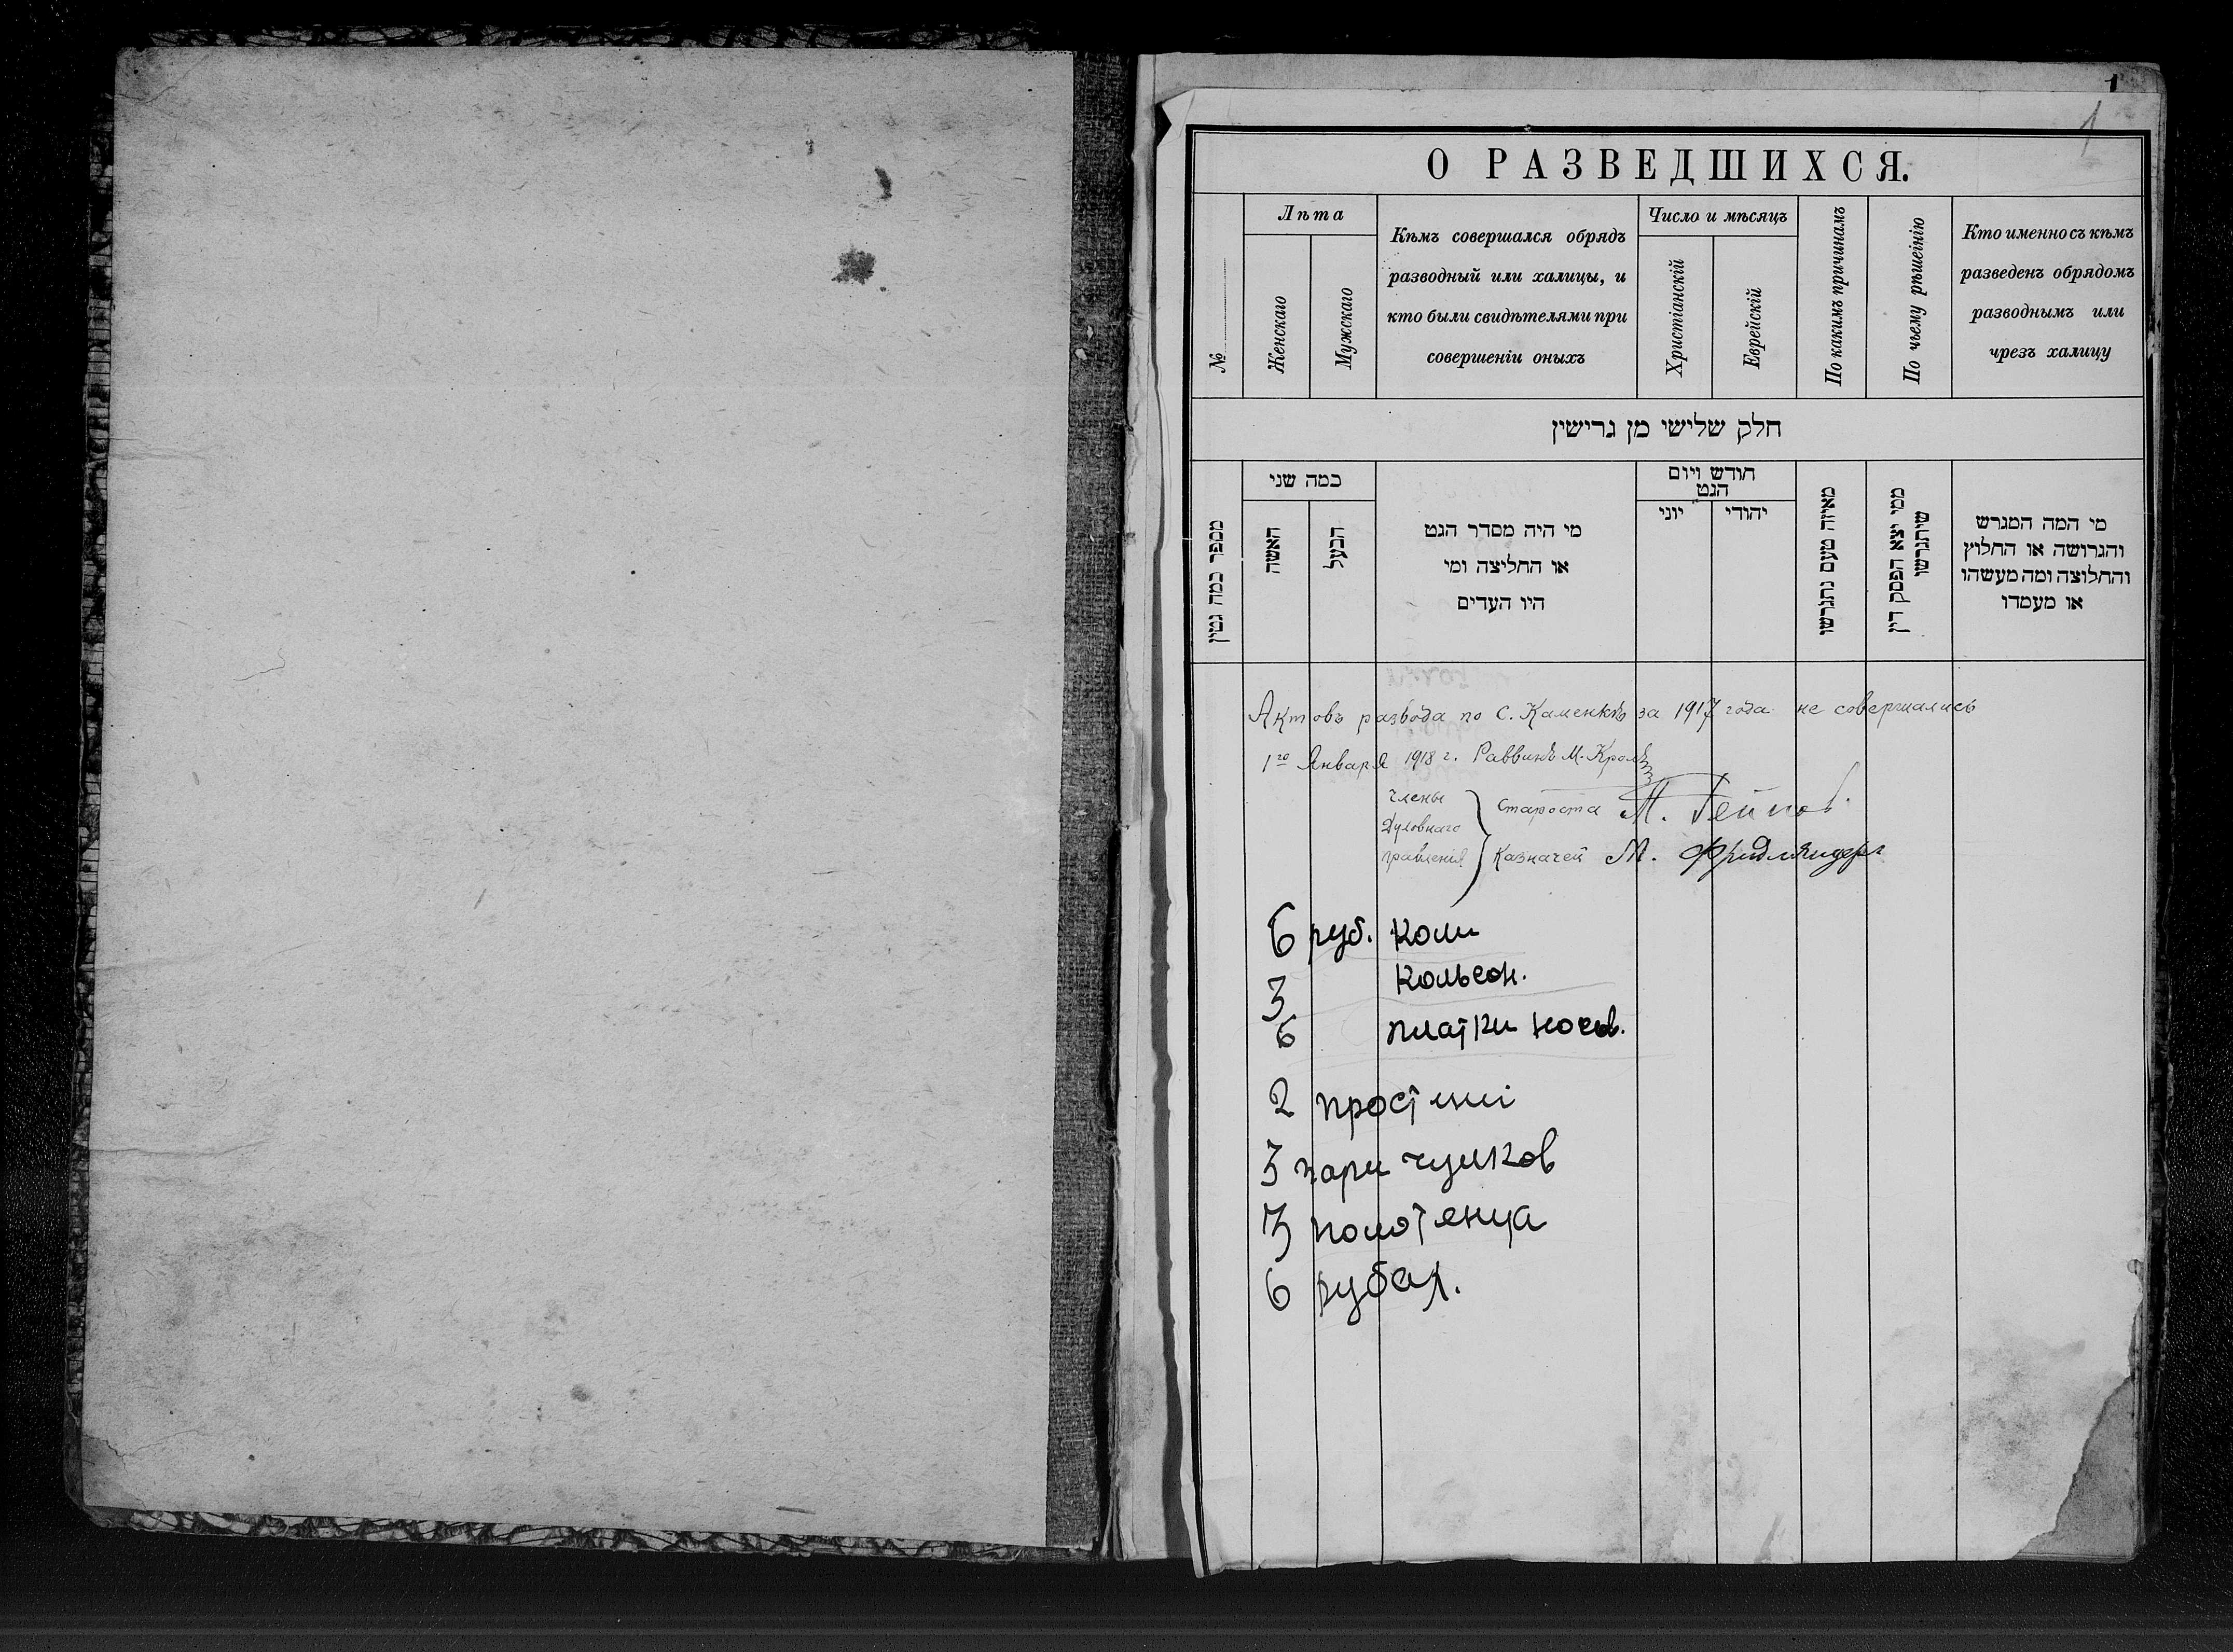 1
1
О РАЗВЕДШИХСЯ.
№
Лѣта
Женскаго
Мужскаго
Кѣмъ совершался обрядъ
разводный или халицы, и
кто были свидѣтелями при
совершеніи оныхъ
Число и мѣсяцъ
Христіанскій
Еврейскій
По какимъ причинамъ
По чьему рѣшенію
Кто именно съ кѣмъ
разведенъ обрядомъ
разводнымъ или
чрезъ халицу
חלק שלישי מן גרישין
מספר כמה גטין
כמה שני
האשה
הבעל
מי היה מסדר הגט
או החליצה ומי
היו העדים
חודש ויום
הגט
יוני
יהודי
מאיזה טעם נתגרשו
ממי יצא הפסק דין
שיתגרשו
מי המה המגרש
והגרושה או החלוץ
והחלוצה ומה מעשהו
או מעמדו
Актовъ развода по С. Каменкѣ за 1917 года не совершались
1го Января 1918 г. Раввинъ М. Кроль
Члены
Духовнаго
правленія
Староста М.
Казначей М. Фридляндеръ
6 руб. коли
3 кольсон.
6 платки носов.
2 простині
3 пари чулков
3 полотянца
6 рубал.